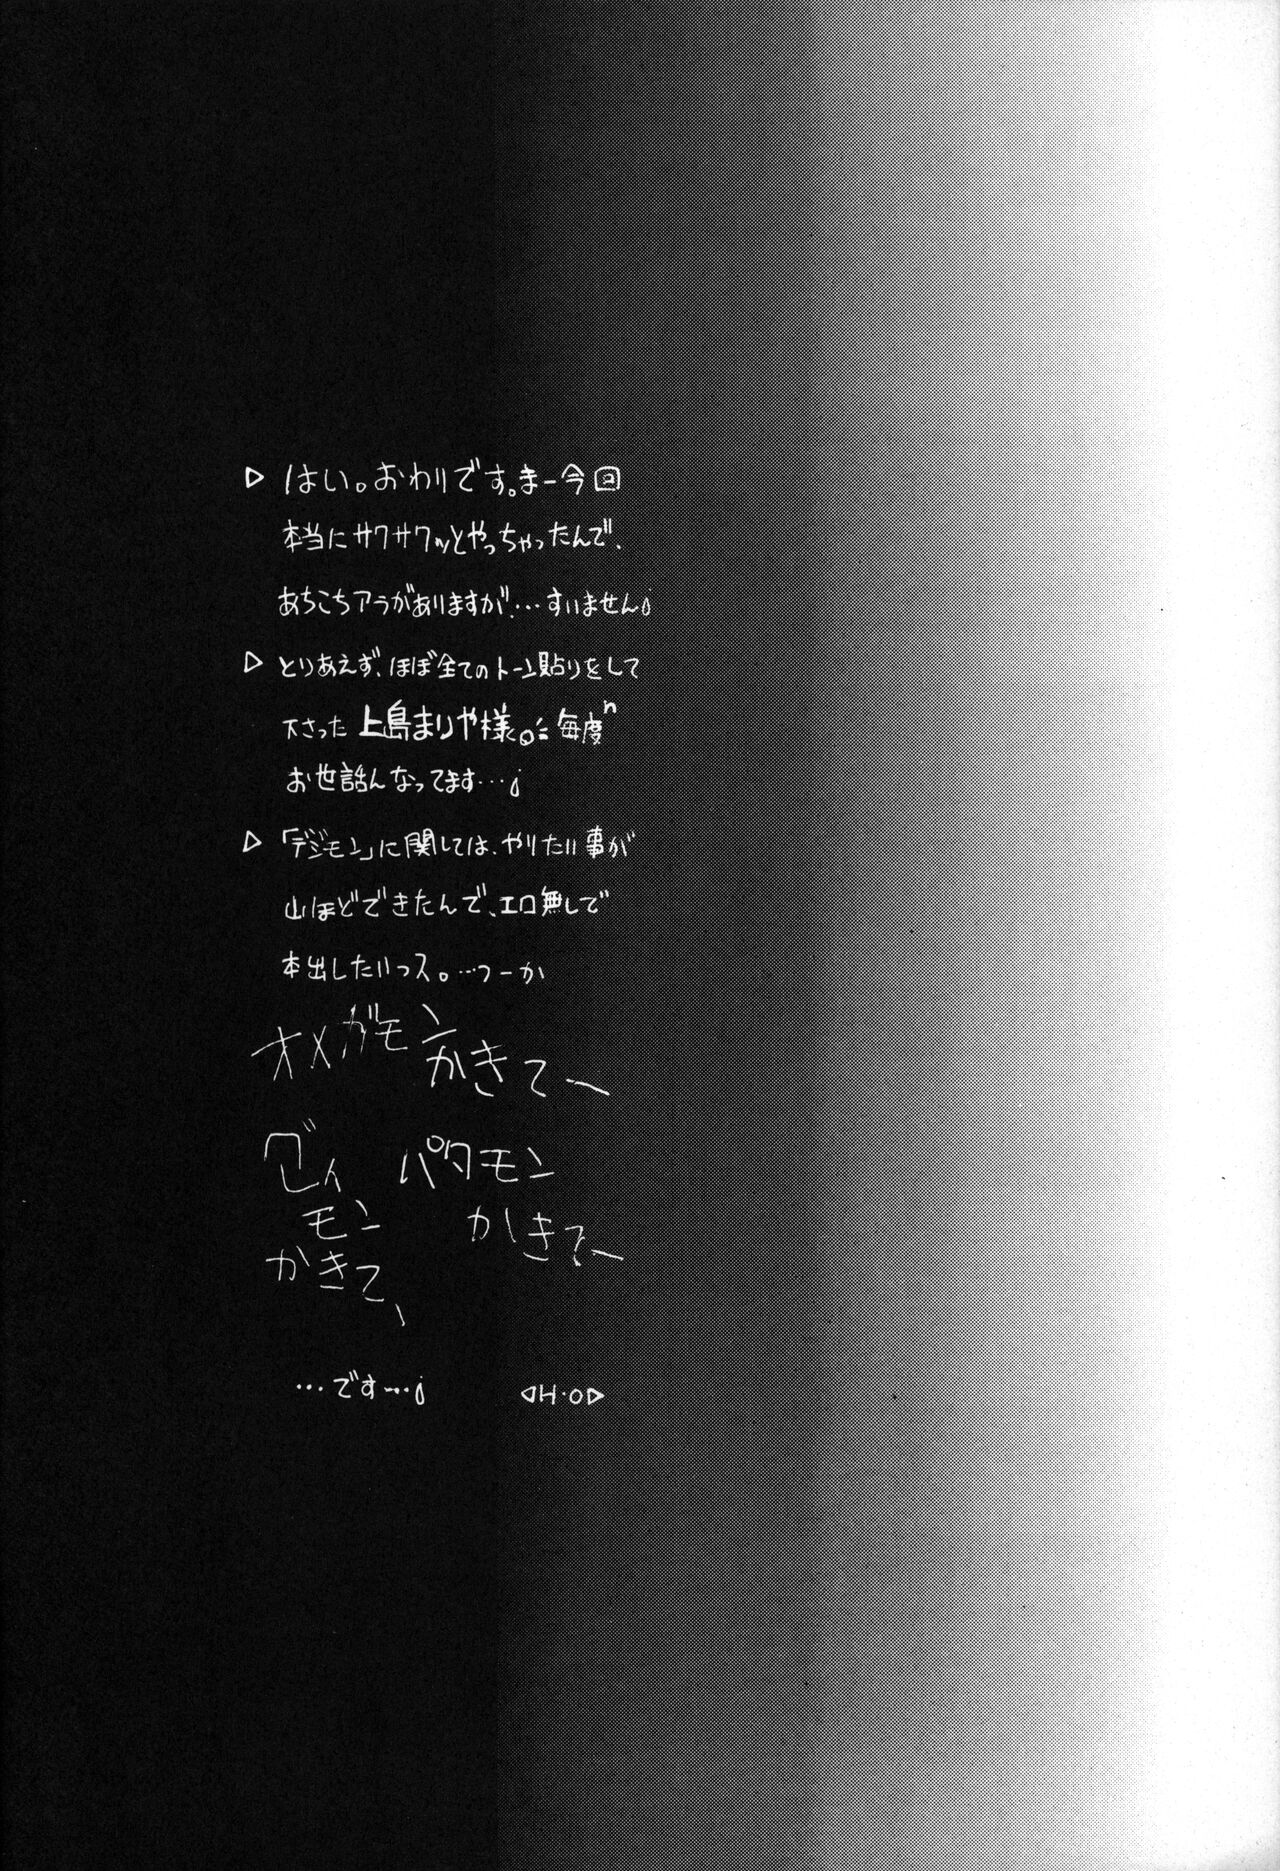 ▷ はい。おわりです。まー今回
本当にサクサクッとやっちゃったんで、
あちこちアラがありますが、…すいません
▷ とりあえず、ほぼ全てのトーン貼りをして
下さった 上島まりや様。 毎度
お世話んなってます…
▷ 「デジモン」に関しては、やりたい事が
山ほどできたんで、エロ無しで
本出したいっス。…つーか
オメガモン
かきてー
ブイ
モン
かきてー
パタモン
かきてー
…です…
◁H・O▷